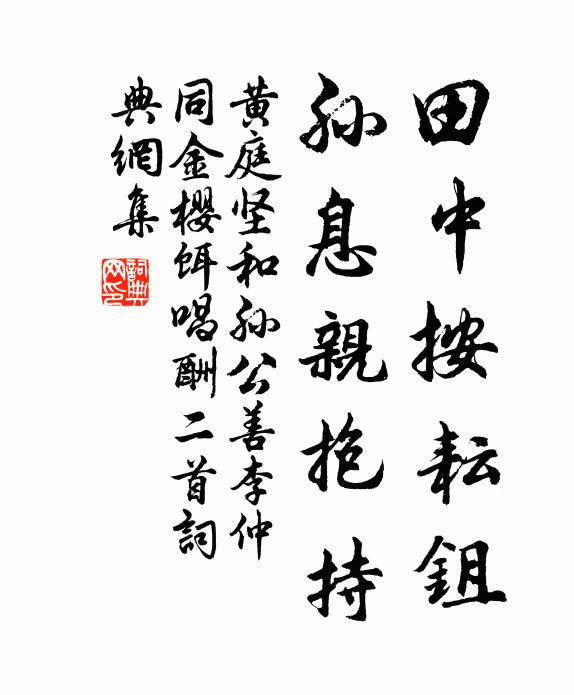 田中按耘鉏
孙息親抱持
黄庭坚和孙公善李仲
同金櫻餌唱酬二首詞
典網集
詞典网印